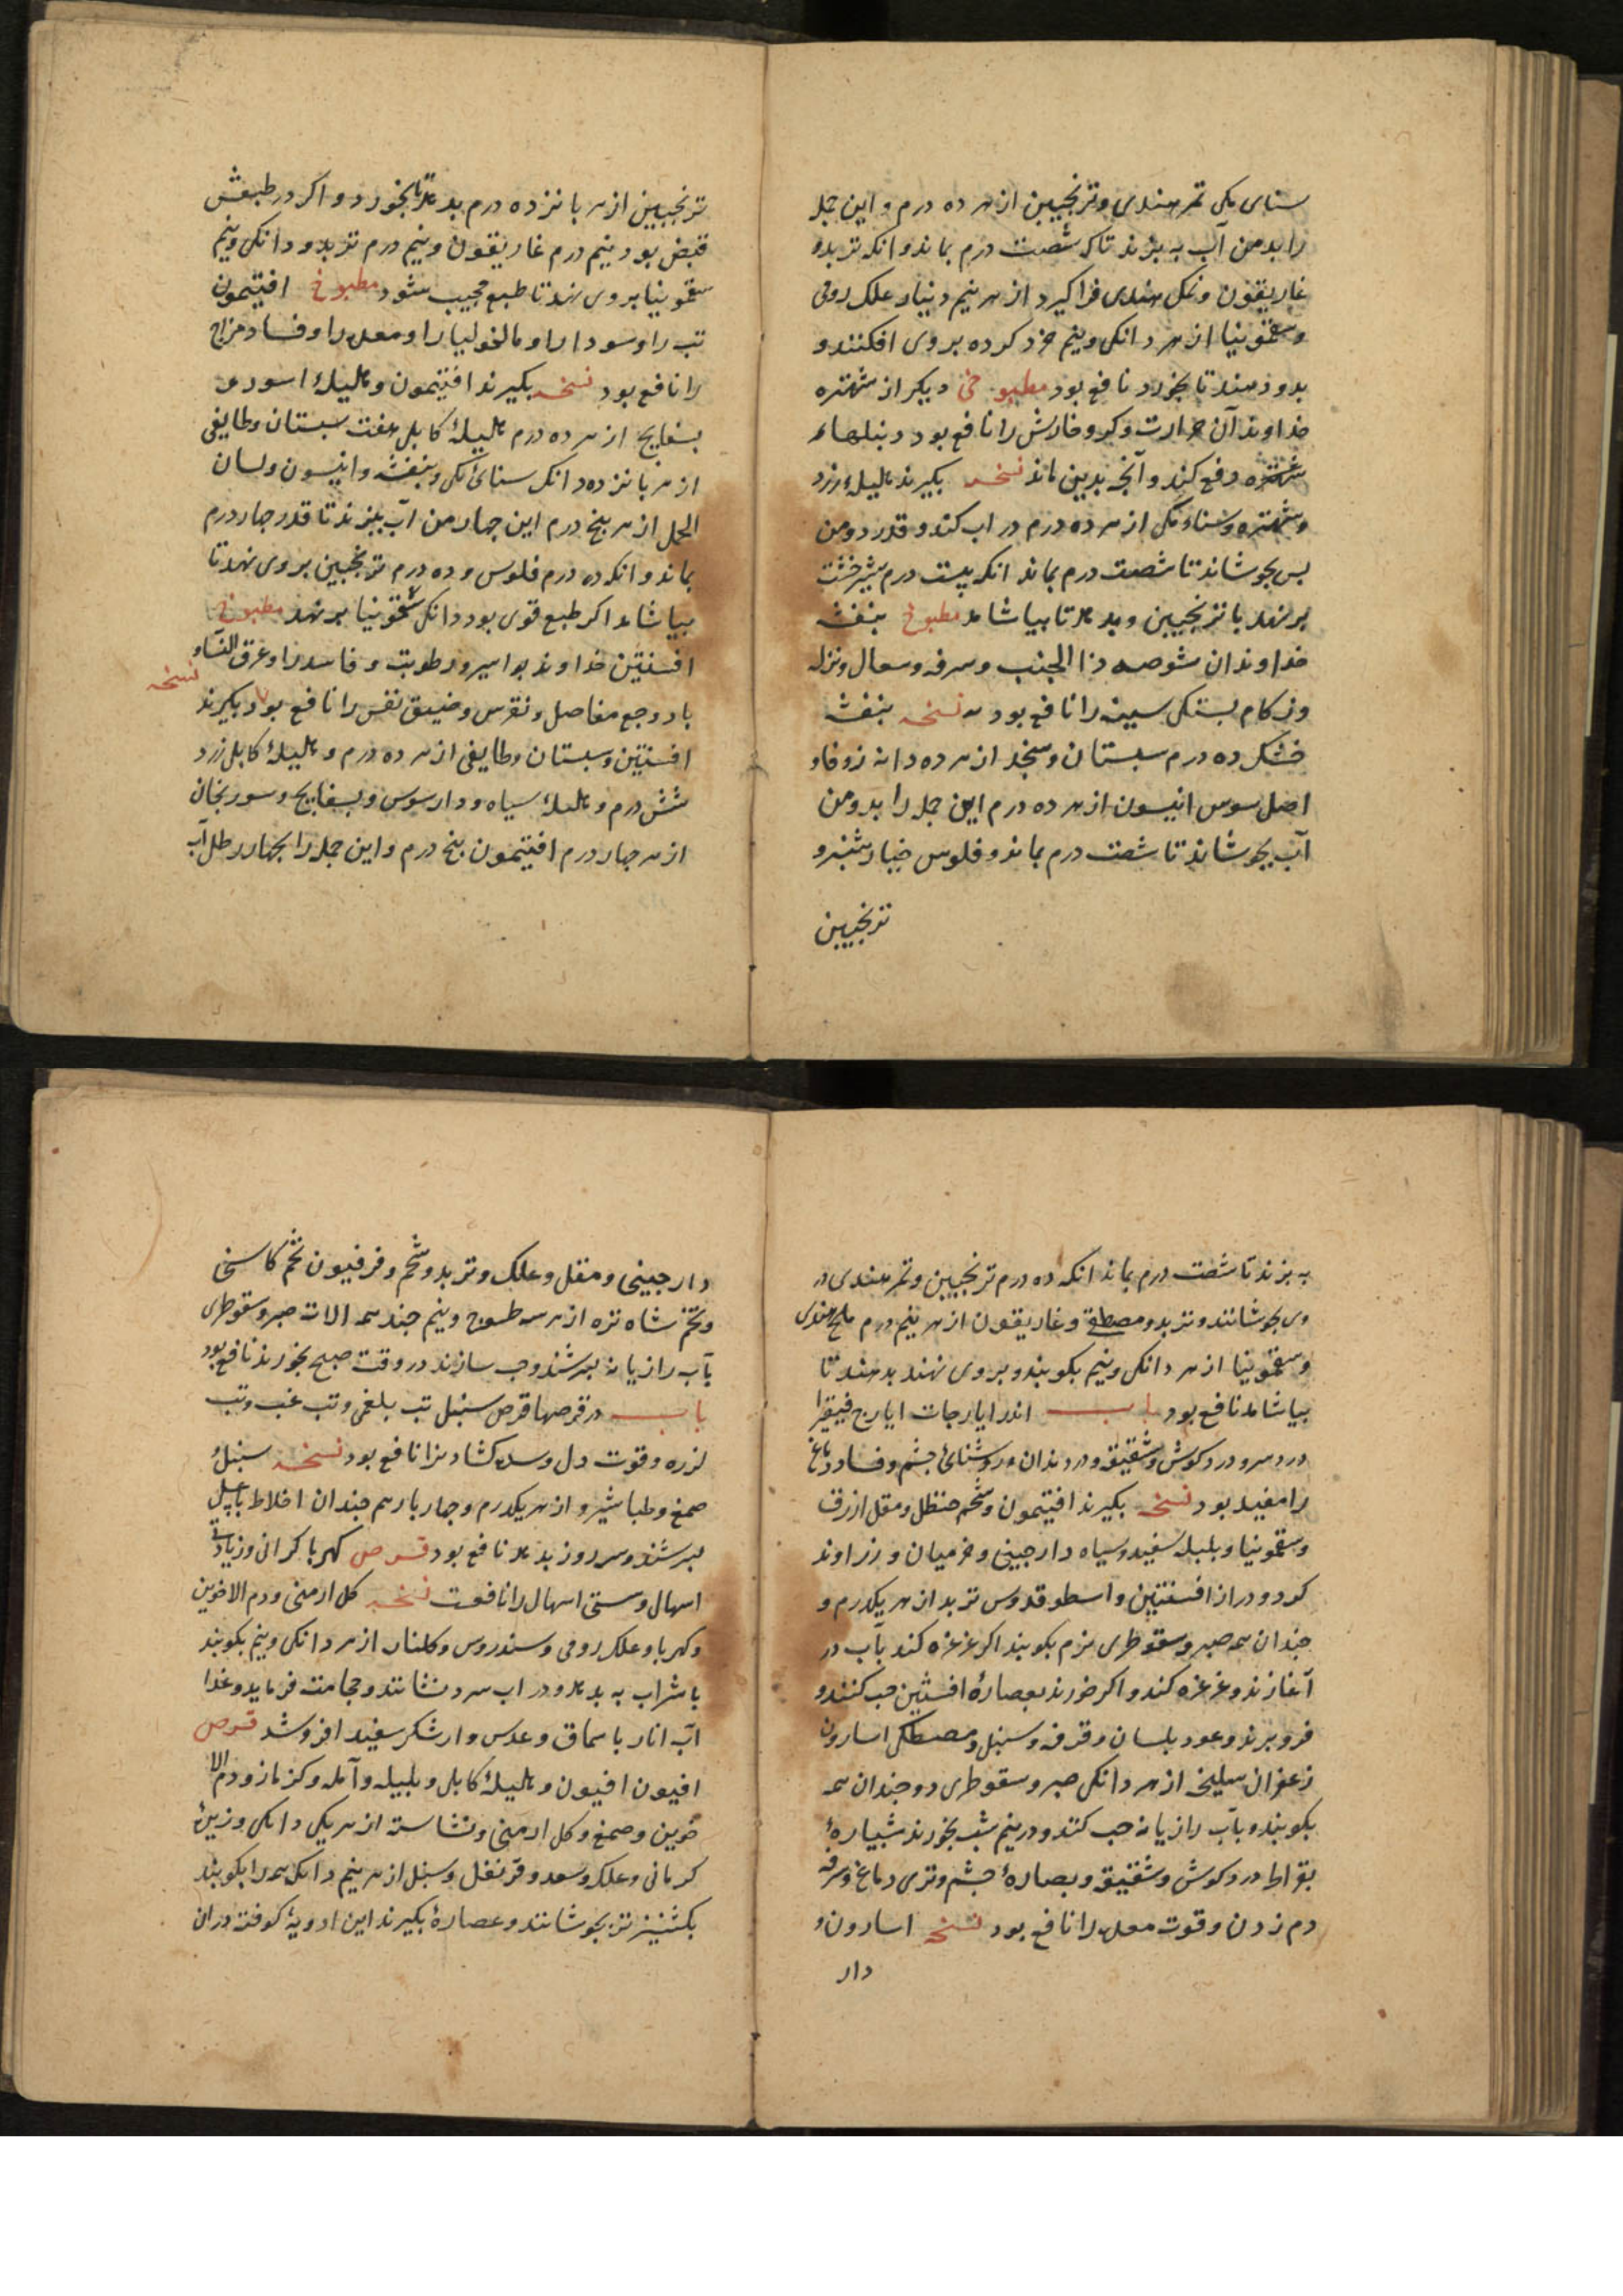 سنای مکی تمر هندی و ترنجبین از هر ده درم و این جمله
را بدو من آب به پزند تا که شصت درم بماند وانکه تربد و
غاریقون و نمک هندی فراکیرد از هر نیم دینار علک رومی
و سقمونیا از هر دانکی و نیم خرد کرده بر وی افکنند و
بدو دهند تا بخورد نافع بود مطبوخی دیکر از شهتره
خداوند آن حرارت و کر و خارش را نافع بود و دنبلهاء
دفع کند و آنچه بدین ماند نسخه بکیرند هلیلهٔ زرد
و شهتره و سناء مکی از هر ده درم در اب کند و قدر دو من
پس بجوشاند تا شصت درم بماند انکه بیست درم شیرخشت
بر نهد با ترنجبین و بدهد تا بیاشامد مطبوخ بنفشه
خداوندان شوصه ذا الجنب و سرفه و سعال و نزله
و زکام بستکی سینه را نافع بود نسخه بنفشه
خشک ده درم سبستان و سنجد از هر ده دانه زوفا و
اصل سوس انیسون از هر ده درم این جمله را بدو من
آب بجوشاند تا شصت درم بماند و فلوس خیار شنبر و
ترنجبین
ترنجبین از هر پانزده درم بدهد تا بخورد و اکر در طبعش
قبض بود نیم درم غاریقون و نیم درم تربد و دانکی و نیم
سقمونیا بر وی نهد تا طبع مجیب شود مطبوخ افتیمون
تب را و سودا را و مالخولیا را و معده را و فساد مزاج
را نافع بود نسخه بکیرند افتیمون و هلیلهٔ اسود و
بسفایج از هر ده درم هلیلهٔ کابلی هفت سبستان و طایفی
از هر پانزده دانک سنای مکی و بنفشه و انیسون و لسان
الحمل از هر پنج درم این چهار من آب بپزند تا قدر چهار درم
بماند وانکه ده درم فلوس و ده درم ترنجبین بر وی نهد تا
بیاشامد اکر طبع قوی بود دانکی سقمونیا بر نهد مطبوخ
افسنتین خداوند بواسیر و رطوبت و فاسد را و عرق النساء و
باد و وجع مفاصل و نقرس و ضیق نفس را نافع بود بکیرند
نسخه
افسنتین و سبستان و طایفی از هر ده درم و هلیلهٔ کابلی زرد
شش درم و هلیلهٔ سیاه و دار سوس و بسفایج و سورنجان
از هر چهار درم افتیمون پنج درم و این جمله را بچهار رطل آب
به پزند تا شصت درم بماند انکه ده درم ترنجبین و تمر هندی در
وی بجوشانند و تربد و مصطکی و غاریقون از هر نیم درم ملح هندی
و سقمونیا از هر دانکی و نیم بکوبند و بر وی نهند بدهند تا
بیاشامد نافع بود باب اندر ایارجات ایارج فیقرا
درد سر و درد کوش و شقیقه و درد دندان و روشنائی چشم و فساد دماغ
را مفید بود نسخه بکیرند افتیمون و شحم حنظل و مقل ازرق
و سقمونیا و بلبل سفید و سیاه دارچینی و خر میان و زراوند
کرد و دراز افسنتین و اسطوقدوس تربد از هر یکدرم و
چندان همه صبر و سقوطری نرم بکوبند اکر غرغره کند بآب در
آغازند و غرغره کند و اکر خورند بعصارهٔ افسنتین حب کنند و
فرو برند و عود بلسان و قرفه و سنبل و مصطکی اسارون
زعفران سلیخه از هر دانکی صبر و سقوطری دو چندان همه
بکوبند و بآب رازیانه حب کنند و در نیم شب بخورند شبیارهٔ
بقراط درد کوش و شقیقه و بصارهٔ چشم و تری دماغ و سرفه
دم زدن و قوت معده را نافع بود نسخه اسارون و
دار
دارچینی و مقل و علک و تربد و شحم و فرفیون تخم کاسنی
و تخم شاه تره از هر سه طسوج و نیم چند همه الات صبر و سقوطری
بآب رازیانه بسرشند و حب سازند در وقت صبح بخورند نافع بود
باب در قرصها قرص سنبل تب بلغمی و تب غب و تب
لرزه و قوت دل و سده کشادنرا نافع بود نسخه سنبل
صمغ و طباشیر و از هر یکدرم و چهار بار هم چندان اخلاط
بسرشند و سر روز بدهد نافع بود قرص کهربا کرانی و زیاد
اسهال و سستی اسهال را نافعست نسخه کل ارمنی و دم الاخوین
و کهربا و علک رومی و سندروس و کلنار از هر دانکی و نیم بکوبند
با شراب به بدهد و در اب سرد نشانند و حجامت فرماید و غذا
آب انار با سماق و عدس و ار شکر سفید افروشد قرص
افیون افیون و هلیلهٔ کابلی و بلیله و آمله و کزمازو و دم الا
خوین و صمغ و کل ارمنی و نشاسته از هر یکی دانکی و زیرهٔ
کرمانی و علک و سعد و قرنفل و سنبل از هر نیم دانک همه را بکوبند
بکشنیز تر بجوشانند و عصارهٔ بکیرند این ادویهٔ کوفته در ان